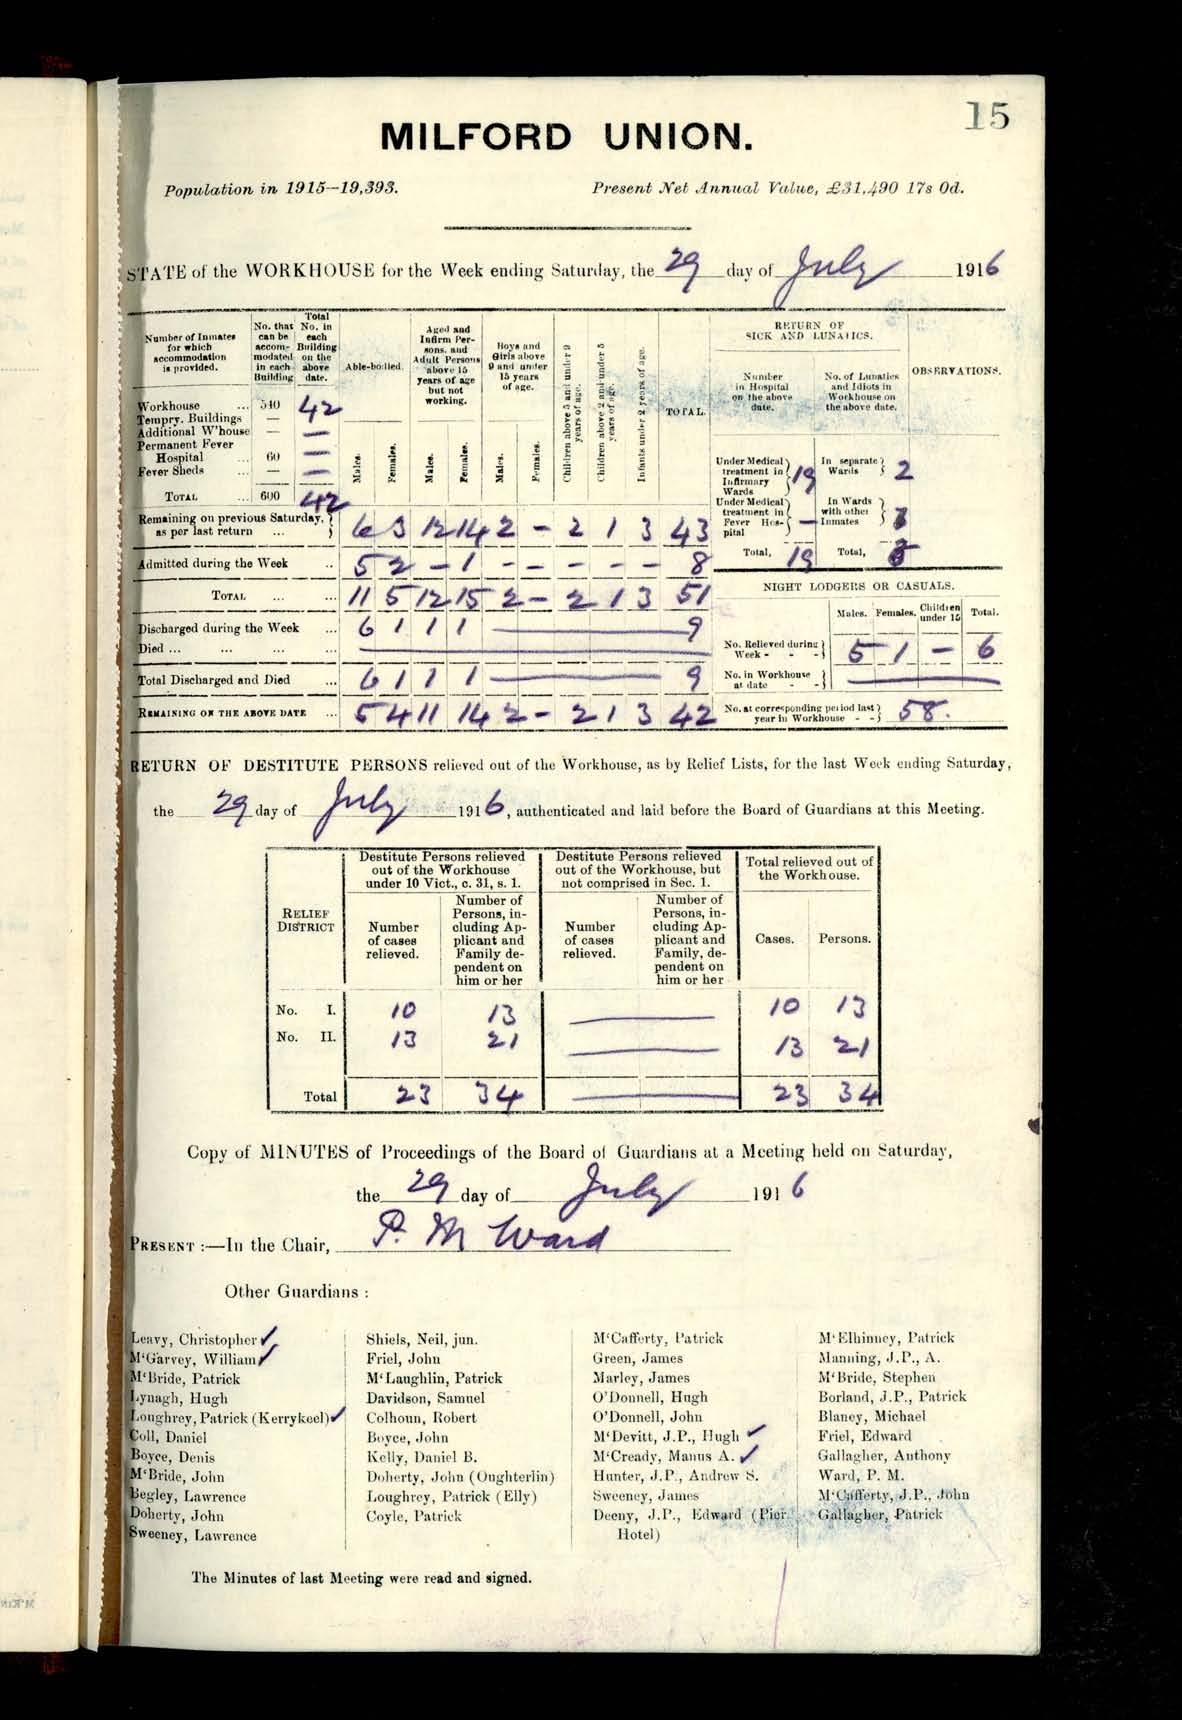 15
MILFORD UNION.
Population in 1915—19,393. Present Net Annual Value, £31,490 17s 0d.
STATE of the WORKHOUSE for the Week ending Saturday, the 29 day of July 1916
Number of Inmates for which accommodation is provided.
No. that can be accommodated in each Building
Total No. in each Building on the above date.
Workhouse ... 540 42
Tempry. Buildings — —
Additional W'house — —
Permanent Fever
Hospital ... 60 —
Fever Sheds ... — —
TOTAL ... 600 42
Able-bodied.
Males. Females.
Aged and Infirm Persons, and Adult Persons above 15 years of age but not working.
Males. Females.
Boys and Girls above 9 and under 15 years of age.
Males. Females.
Children above 5 and under 9 years of age.
Children above 2 and under 5 years of age.
Infants under 2 years of age.
TOTAL.
Remaining on previous Saturday, as per last return ... 6 3 12 14 2 - 2 1 3 43
Admitted during the Week .. 5 2 - 1 - - - - - 8
TOTAL ... ... 11 5 12 15 2 - 2 1 3 51
Discharged during the Week ... 6 1 1 1 — 9
Died ... ... ... ... —
Total Discharged and Died ... 6 1 1 1 — 9
REMAINING ON THE ABOVE DATE ... 5 4 11 14 2 - 2 1 3 42
RETURN OF SICK AND LUNATICS.
Number in Hospital on the above date.
No. of Lunatics and Idiots in Workhouse on the above date.
OBSERVATIONS.
Under Medical treatment in Infirmary Wards 19
In separate Wards 2
Under Medical treatment in Fever Hospital —
In Wards with other Inmates
Total, 19 Total,
NIGHT LODGERS OR CASUALS.
Males. Females. Children under 15 Total.
No. Relieved during Week - - - 5 1 - 6
No. in Workhouse at date - - —
No. at corresponding period last year in Workhouse - - 58.
RETURN OF DESTITUTE PERSONS relieved out of the Workhouse, as by Relief Lists, for the last Week ending Saturday,
the 29 day of July 1916, authenticated and laid before the Board of Guardians at this Meeting.
RELIEF DISTRICT
Destitute Persons relieved out of the Workhouse under 10 Vict., c. 31, s. 1.
Destitute Persons relieved out of the Workhouse, but not comprised in Sec. 1.
Total relieved out of the Workhouse.
Number of cases relieved.
Number of Persons, including Applicant and Family dependent on him or her
Number of cases relieved.
Number of Persons, including Applicant and Family, dependent on him or her
Cases. Persons.
No. I. 10 13 — 10 13
No. II. 13 21 — 13 21
Total 23 34 — 23 34
Copy of MINUTES of Proceedings of the Board of Guardians at a Meeting held on Saturday,
the 29 day of July 1916
PRESENT :—In the Chair, P. M Ward
Other Guardians :
Leavy, Christopher ✓
M'Garvey, William ✓
M'Bride, Patrick
Lynagh, Hugh
Loughrey, Patrick (Kerrykeel) ✓
Coll, Daniel
Boyce, Denis
M'Bride, John
Begley, Lawrence
Doherty, John
Sweeney, Lawrence
Shiels, Neil, jun.
Friel, John
M'Laughlin, Patrick
Davidson, Samuel
Colhoun, Robert
Boyce, John
Kelly, Daniel B.
Doherty, John (Oughterlin)
Loughrey, Patrick (Elly)
Coyle, Patrick
M'Cafferty, Patrick
Green, James
Marley, James
O'Donnell, Hugh
O'Donnell, John
M'Devitt, J.P., Hugh ✓
M'Cready, Manus A. ✓
Hunter, J.P., Andrew S.
Sweeney, James
Deeny, J.P., Edward (Pier
Hotel)
M'Elhinney, Patrick
Manning, J.P., A.
M'Bride, Stephen
Borland, J.P., Patrick
Blaney, Michael
Friel, Edward
Gallagher, Anthony
Ward, P. M.
M'Cafferty, J.P., John
Gallagher, Patrick
The Minutes of last Meeting were read and signed.